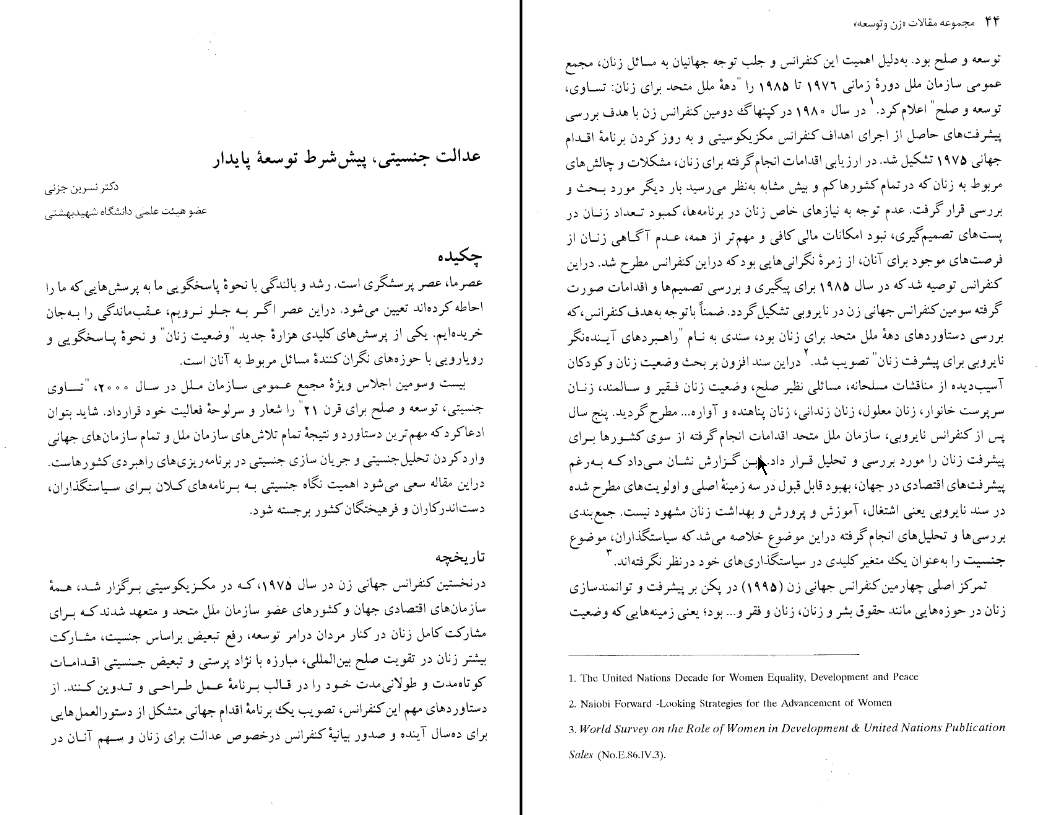 عدالت جنسیتی، پیش‌شرط توسعهٔ پایدار
دکتر نسرین جزنی
عضو هیئت علمی دانشگاه شهیدبهشتی
چکیده
عصرما، عصر پرسشگری است. رشد و بالندگی با نحوهٔ پاسخگویی ما به پرسش‌هایی که ما را
احاطه کرده‌اند تعیین می‌شود. دراین عصر اگر به جلو نرویم، عقب‌ماندگی را به‌جان
خریده‌ایم. یکی از پرسش‌های کلیدی هزارهٔ جدید "وضعیت زنان" و نحوهٔ پاسخگویی و
رویارویی با حوزه‌های نگران‌کنندهٔ مسائل مربوط به آنان است.
بیست وسومین اجلاس ویژهٔ مجمع عمومی سازمان ملل در سال ۲۰۰۰، "تساوی
جنسیتی، توسعه و صلح برای قرن ۲۱" را شعار و سرلوحهٔ فعالیت خود قرارداد. شاید بتوان
ادعاکرد که مهم‌ترین دستاورد و نتیجهٔ تمام تلاش‌های سازمان ملل و تمام سازمان‌های جهانی
واردکردن تحلیل‌جنسیتی و جریان سازی جنسیتی در برنامه‌ریزی‌های راهبردی کشورهاست.
دراین مقاله سعی می‌شود اهمیت نگاه جنسیتی به برنامه‌های کلان برای سیاستگذاران،
دست‌اندرکاران و فرهیختگان کشور برجسته شود.
تاریخچه
درنخستین کنفرانس جهانی زن در سال ۱۹۷۵، که در مکزیکوسیتی برگزار شد، همهٔ
سازمان‌های اقتصادی جهان و کشورهای عضو سازمان ملل متحد و متعهد شدند که برای
مشارکت کامل زنان در کنار مردان درامر توسعه، رفع تبعیض براساس جنسیت، مشارکت
بیشتر زنان در تقویت صلح بین‌المللی، مبارزه با نژاد پرستی و تبعیض جنسیتی اقدامات
کوتاه‌مدت و طولانی‌مدت خود را در قالب برنامهٔ عمل طراحی و تدوین کنند. از
دستاوردهای مهم این کنفرانس، تصویب یک برنامهٔ اقدام جهانی متشکل از دستورالعمل‌هایی
برای ده‌سال آینده و صدور بیانیهٔ کنفرانس درخصوص عدالت برای زنان و سهم آنان در
۴۴ مجموعه مقالات «زن و توسعه»
توسعه و صلح بود. به‌دلیل اهمیت این کنفرانس و جلب توجه جهانیان به مسائل زنان، مجمع
عمومی سازمان ملل دورهٔ زمانی ۱۹۷۶ تا ۱۹۸۵ را "دههٔ ملل متحد برای زنان: تساوی،
توسعه و صلح" اعلام‌کرد.۱ در سال ۱۹۸۰ در کپنهاگ دومین کنفرانس زن با هدف بررسی
پیشرفت‌های حاصل از اجرای اهداف کنفرانس مکزیکوسیتی و به روز کردن برنامهٔ اقدام
جهانی ۱۹۷۵ تشکیل شد. در ارزیابی اقدامات انجام‌گرفته برای زنان، مشکلات و چالش‌های
مربوط به زنان که درتمام کشورها کم و بیش مشابه به‌نظر می‌رسید بار دیگر مورد بحث و
بررسی قرار گرفت. عدم توجه به نیازهای خاص زنان در برنامه‌ها، کمبود تعداد زنان در
پست‌های تصمیم‌گیری، نبود امکانات مالی کافی و مهم‌تر از همه، عدم آگاهی زنان از
فرصت‌های موجود برای آنان، از زمرهٔ نگرانی‌هایی بود که دراین کنفرانس مطرح شد. دراین
کنفرانس توصیه شد که در سال ۱۹۸۵ برای پیگیری و بررسی تصمیم‌ها و اقدامات صورت
گرفته سومین کنفرانس جهانی زن در نایروبی تشکیل گردد. ضمناً باتوجه به‌هدف کنفرانس، که
بررسی دستاوردهای دههٔ ملل متحد برای زنان بود، سندی به نام "راهبردهای آینده‌نگر
نایروبی برای پیشرفت زنان" تصویب شد.۲ دراین سند افزون بر بحث وضعیت زنان و کودکان
آسیب‌دیده از مناقشات مسلحانه، مسائلی نظیر صلح، وضعیت زنان فقیر و سالمند، زنان
سرپرست خانوار، زنان معلول، زنان زندانی، زنان پناهنده و آواره... مطرح گردید. پنج سال
پس از کنفرانس نایروبی، سازمان ملل متحد اقدامات انجام گرفته از سوی کشورها برای
پیشرفت زنان را مورد بررسی و تحلیل قرار داد. این گزارش نشان می‌داد که به‌رغم
پیشرفت‌های اقتصادی در جهان، بهبود قابل قبول در سه زمینهٔ اصلی و اولویت‌های مطرح شده
در سند نایروبی یعنی اشتغال، آموزش و پرورش و بهداشت زنان مشهود نیست. جمع‌بندی
بررسی‌ها و تحلیل‌های انجام‌گرفته دراین موضوع خلاصه می‌شد که سیاستگذاران، موضوع
جنسیت را به‌عنوان یک متغیر کلیدی در سیاستگذاری‌های خود درنظر نگرفته‌اند.۳
تمرکز اصلی چهارمین کنفرانس جهانی زن (۱۹۹۵) در پکن بر پیشرفت و توانمندسازی
زنان در حوزه‌هایی مانند حقوق بشر و زنان، زنان و فقر و... بود؛ یعنی زمینه‌هایی که وضعیت
1. The United Nations Decade for Women Equality, Development and Peace
2. Naiobi Forward -Looking Strategies for the Advancement of Women
3. World Survey on the Role of Women in Development & United Nations Publication
Sales (No.E.86.IV.3).